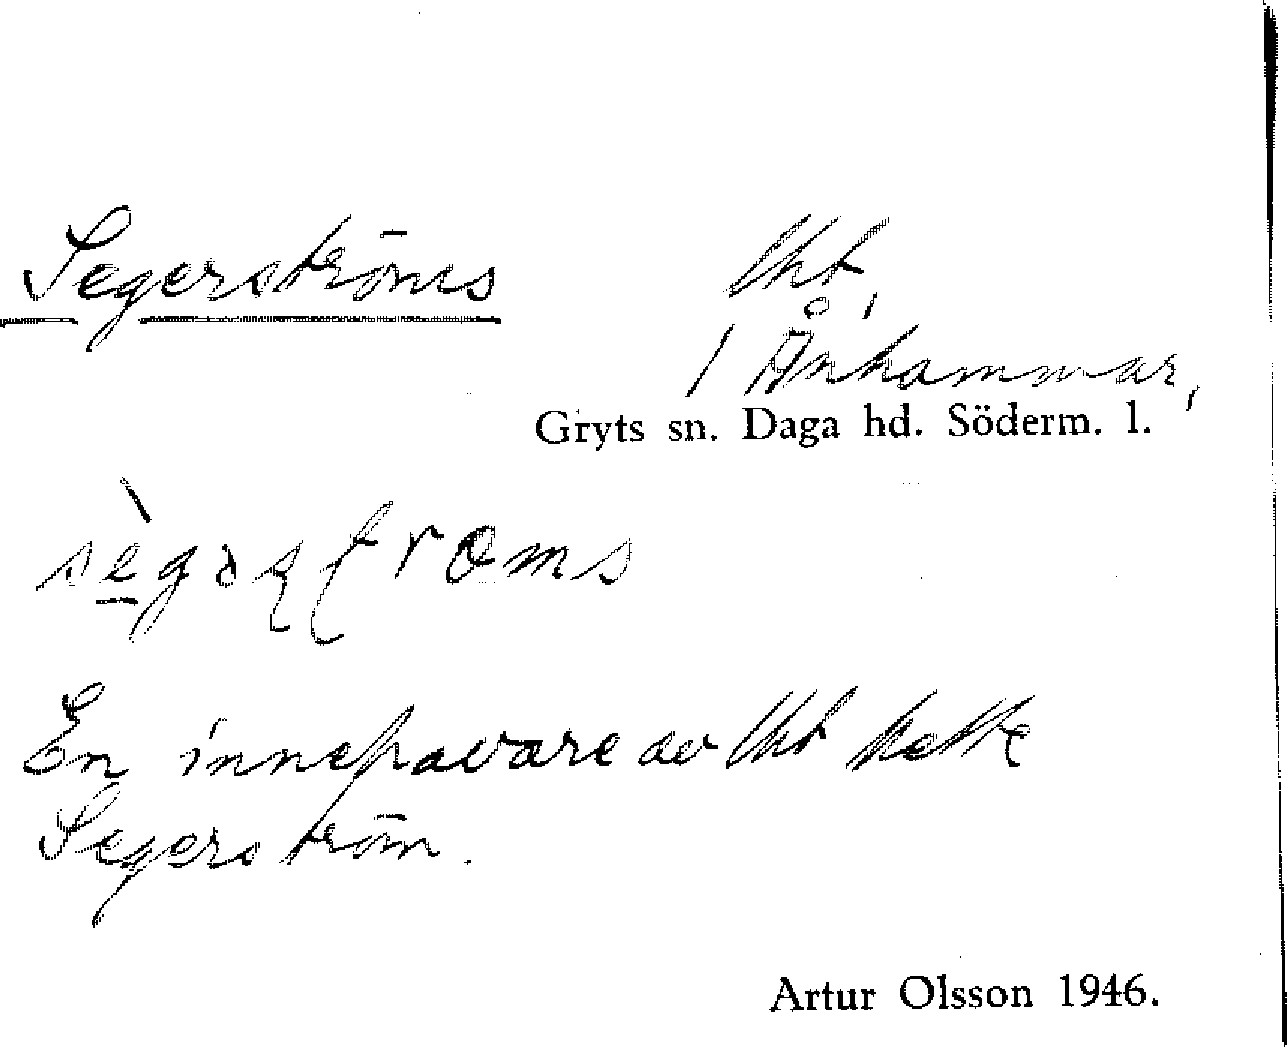 Segerströms lht,
/ Ånhammar,
Gryts sn. Daga hd. Söderm. l.
En innehavare av lht hette
Segerström.
Artur Olsson 1946.